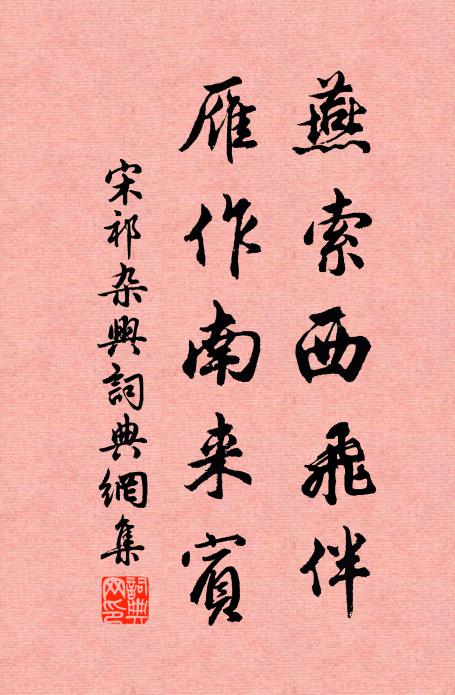 燕索西飛伴
雁作南来賓
宋祁杂興詞典網集
詞典網印